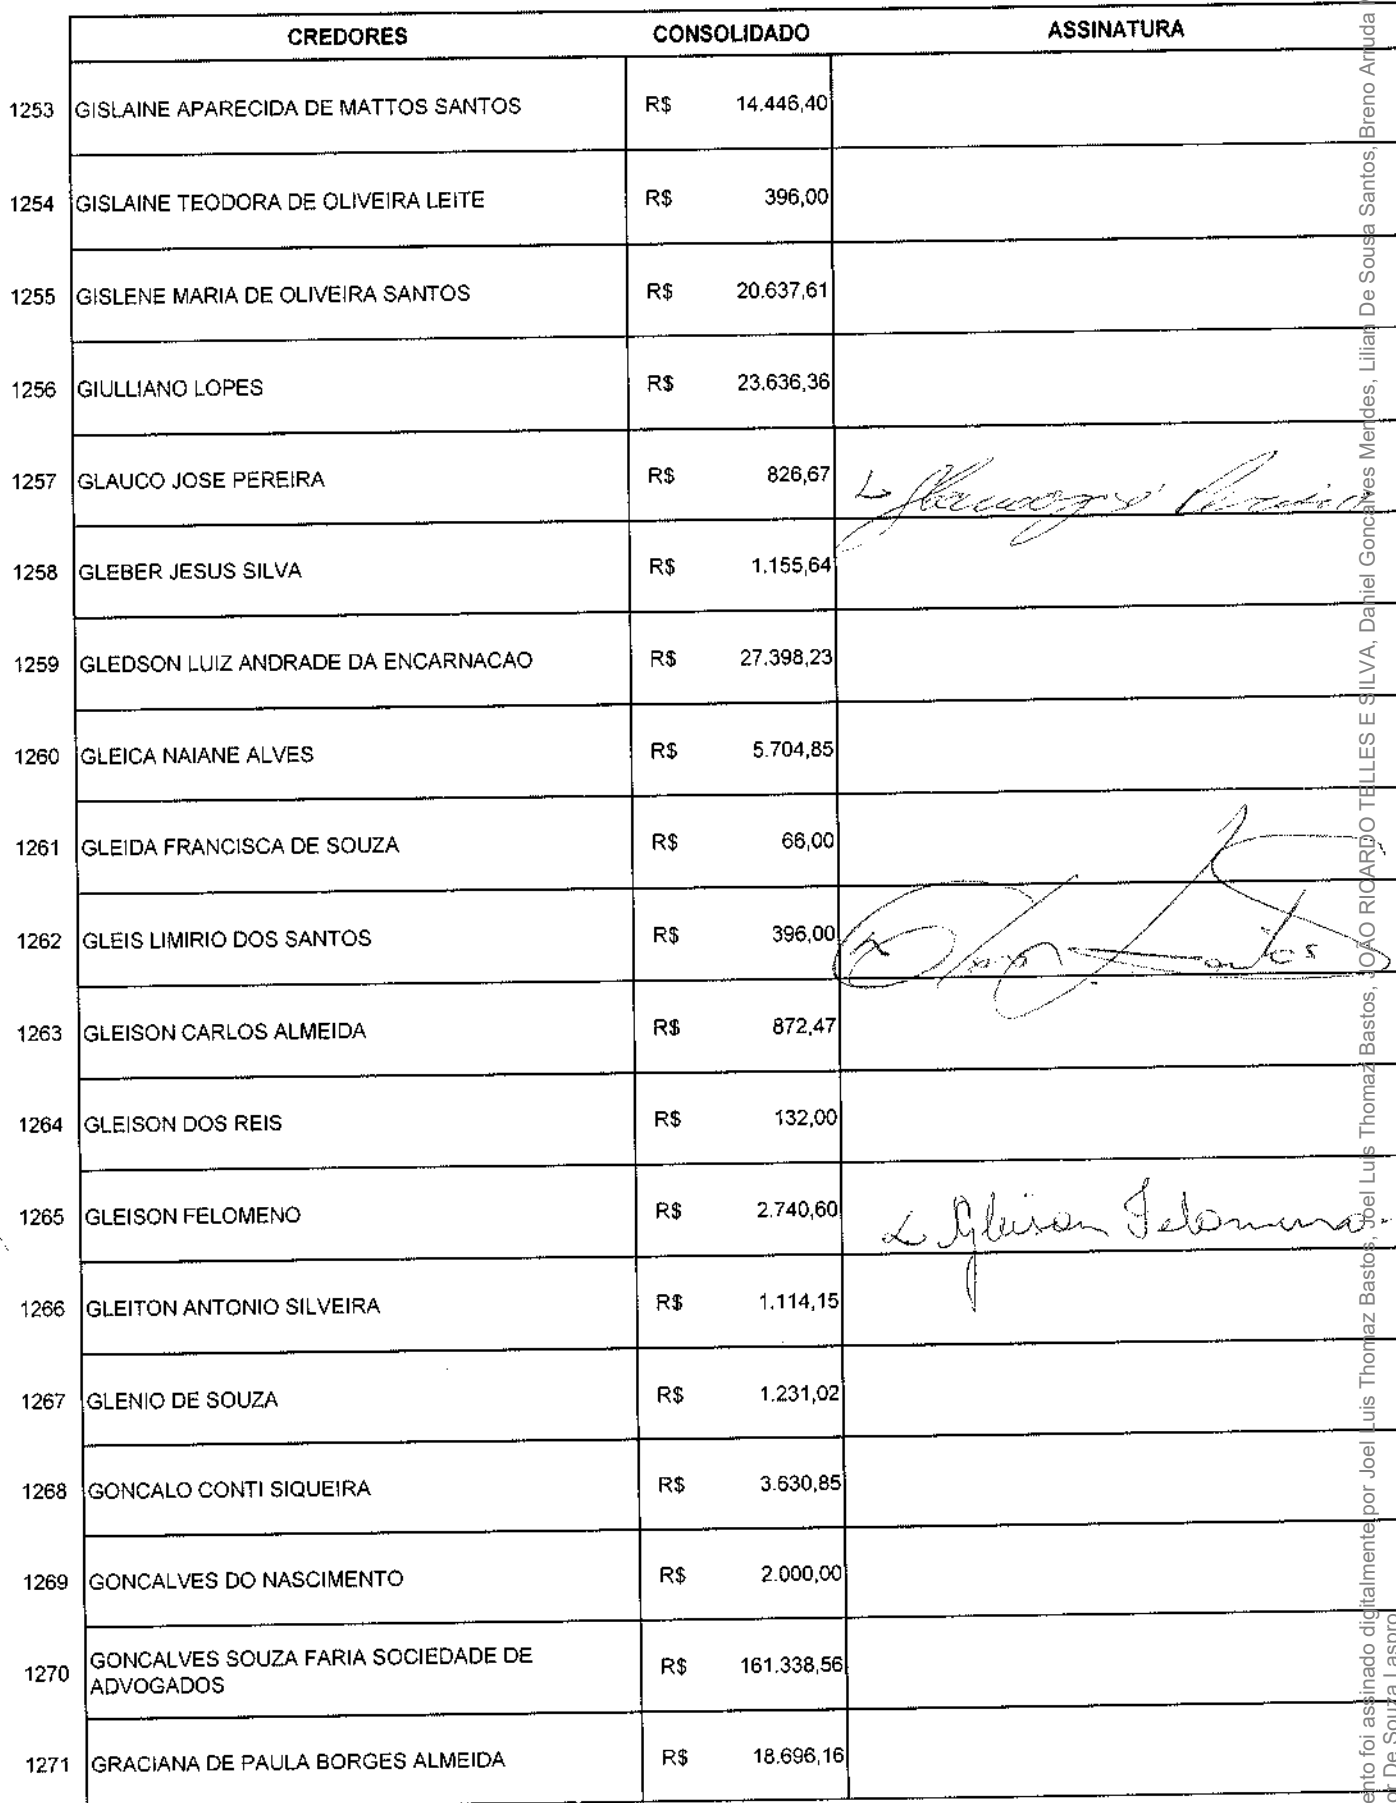 CREDORES CONSOLIDADO ASSINATURA
1253 GISLAINE APARECIDA DE MATTOS SANTOS R$ 14.446,40
1254 GISLAINE TEODORA DE OLIVEIRA LEITE R$ 396,00
1255 GISLENE MARIA DE OLIVEIRA SANTOS R$ 20.637,61
1256 GIULLIANO LOPES R$ 23.636,36
1257 GLAUCO JOSE PEREIRA R$ 826,67
1258 GLEBER JESUS SILVA R$ 1.155,64
1259 GLEDSON LUIZ ANDRADE DA ENCARNACAO R$ 27.398,23
1260 GLEICA NAIANE ALVES R$ 5.704,85
1261 GLEIDA FRANCISCA DE SOUZA R$ 66,00
1262 GLEIS LIMIRIO DOS SANTOS R$ 396,00
1263 GLEISON CARLOS ALMEIDA R$ 872,47
1264 GLEISON DOS REIS R$ 132,00
1265 GLEISON FELOMENO R$ 2.740,60 Gleison Felomeno
1266 GLEITON ANTONIO SILVEIRA R$ 1.114,15
1267 GLENIO DE SOUZA R$ 1.231,02
1268 GONCALO CONTI SIQUEIRA R$ 3.630,85
1269 GONCALVES DO NASCIMENTO R$ 2.000,00
1270 GONCALVES SOUZA FARIA SOCIEDADE DE
ADVOGADOS R$ 161.338,56
1271 GRACIANA DE PAULA BORGES ALMEIDA R$ 18.696,16
ento foi assinado digitalmente por Joel Luis Thomaz Bastos, Joel Luis Thomaz Bastos, JOAO RICARDO TELLES E SILVA, Daniel Goncalves Mendes, Lilian De Sousa Santos, Breno Arruda
or De Souza Laspro